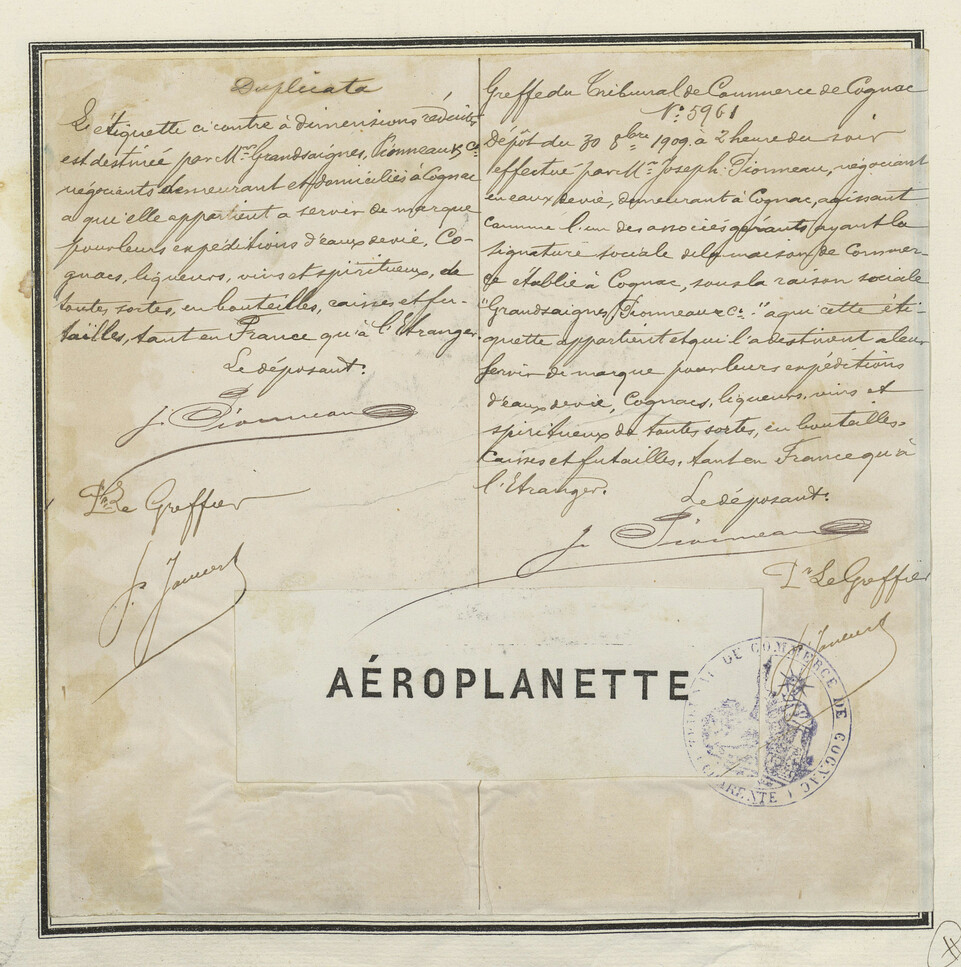 Duplicata
L'étiquette ci contre à dimensions réduites
est destinée par Mrs Grandsaignes, Pionneau & Cie
négociants demeurant et domiciliés à Cognac
a qui elle appartient a servir de marque
pour leurs expéditions d'eaux de vie, Co-
gnacs, liqueurs, vins et spiritueux, de
toutes sortes, en bouteilles, caisses et fu-
tailles, tant en France qu'à l'Etranger.
Le déposant.
J. Pionneau
Pr Le Greffier
Greffe du Tribunal de Commerce de Cognac
N° 5961
Dépôt du 30 8bre 1909 à 2 heure du soir
effectué par Mr Joseph Pionneau, négociant
en eaux de vie, demeurant à Cognac, agissant
comme l'un des associés gérants ayant la
signature sociale de la maison de Commer-
ce établie à Cognac, sous la raison sociale
"Grandsaignes, Pionneau & Cie" a qui cette éti-
quette appartient et qui l'a destinent a leur
servir de marque pour leurs expéditions
d'eaux de vie, Cognacs, liqueurs, vins et
spiritueux de toutes sortes, en bouteilles,
caisses et futailles, tant en France qu'à
l'Etranger.
Le déposant.
J. Pionneau
Pr Le Greffier
AÉROPLANETTE
TRIBUNAL DE COMMERCE DE COGNAC
(CHARENTE)